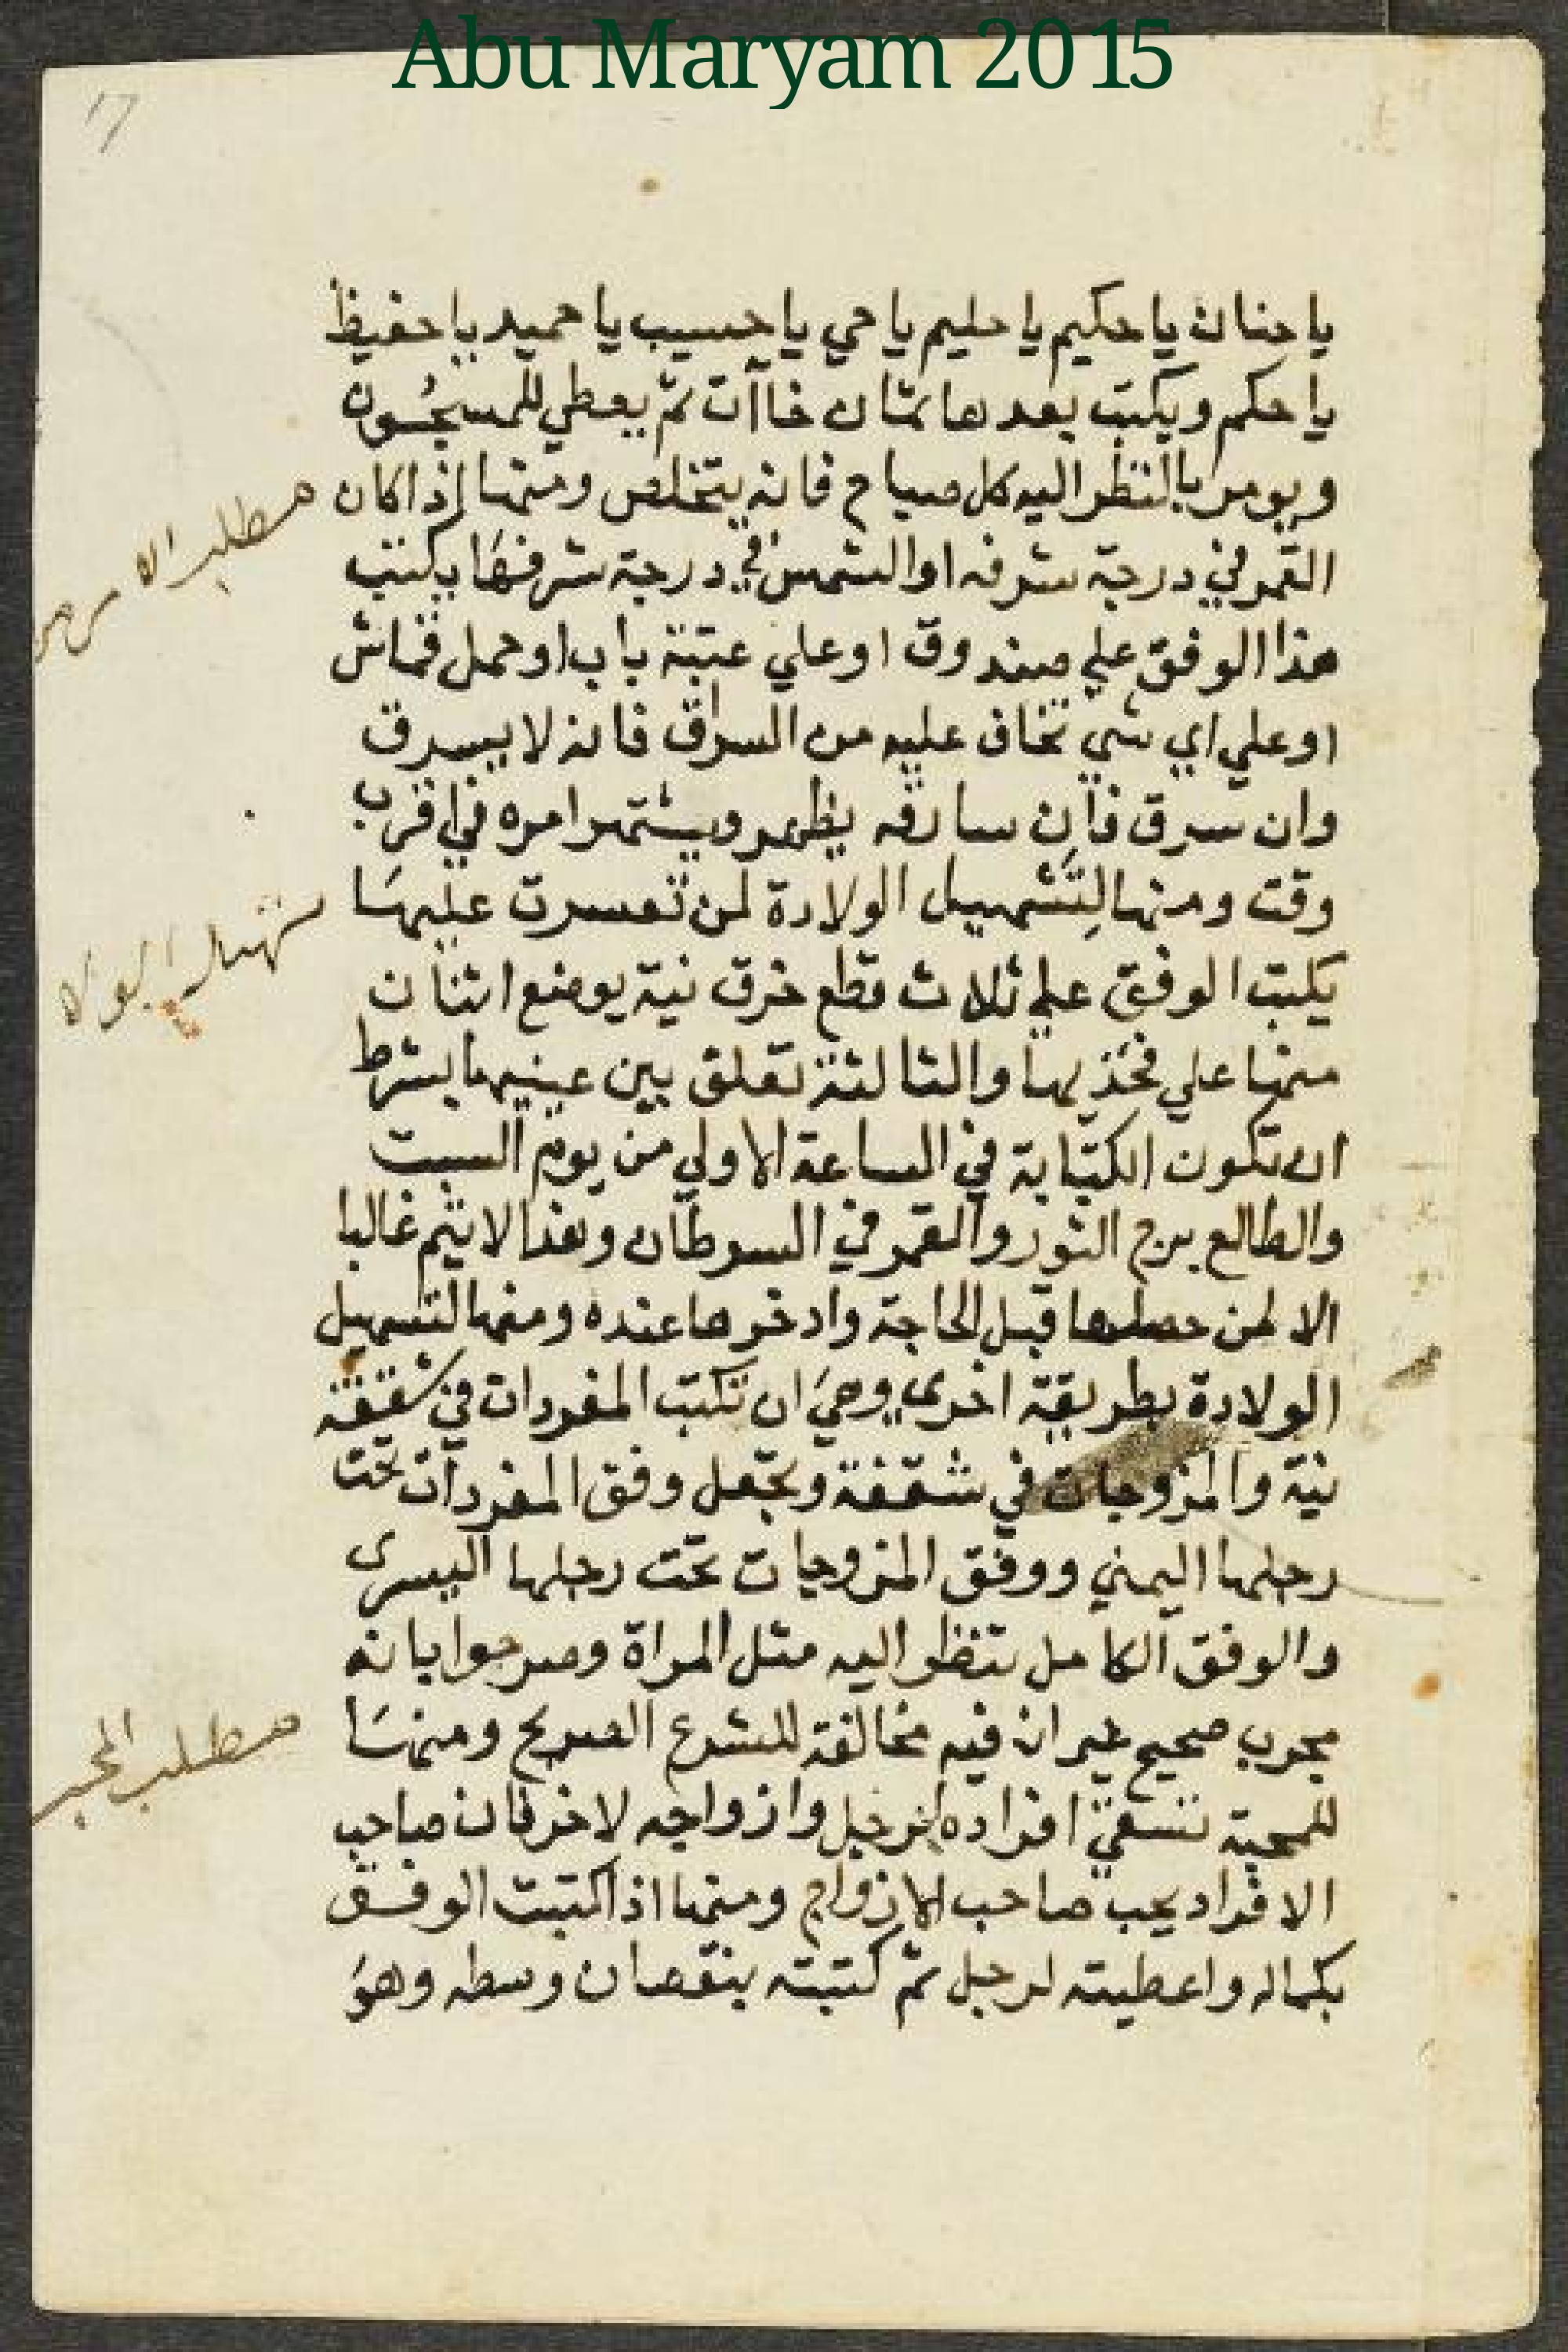 Abu Maryam 2015
17
يا حنان يا حكيم يا حليم يا حي يا حسيب يا حميد يا حفيظ
يا حكم ويكتب بعدها ثمان خاآت ثم يعطي للمسجُون
ويومر بالنظر اليه كل صباح فانه يتخلص ومنها اذا كان
القمر في درجة شرفه او الشمس في درجة شرفها يكتب
هذا الوفق علي صندوق او علي عتبة باب او حمل قماش
او علي اي شي تخاف عليه من السراق فانه لا يسرق
وان سرق فان سارقه يظهر ويشتهر امره في اقرب
وقت ومنها لتسهيل الولادة لمن تعسرت عليها
يكتب الوفق علي ثلاث قطع خزف نية يوضع اثنان
منها علي فخذيها والثالثة تعلق بين عينيها بشرط
ان تكون الكتابة في الساعة الاولي من يوم السبت
والطالع برج الثور والقمر في السرطان وهذا لا يتم غالبا
الا لمن حصلها قبل الحاجة وادخرها عنده ومنها لتسهيل
الولادة بطريقة اخري وهي ان تكتب المفردات في شقفة
نية والمزوجات في شقفة وتجعل وفق المفردات تحت
رجلها اليمني ووفق المزوجات تحت رجلها اليسرى
والوفق الكامل تنظر اليه مثل المراة وصرحوا بانه
مجرب صحيح غير ان فيه مخالفة للشرع الصريح ومنها
للمحبة تسقي افراده لرجل وازواجه لاخر فان صاحب
الافراد يحب صاحب الازواج ومنها اذا كتبت الوفق
بكماله واعطيته لرجل ثم كتبته بنقصان وسطه وهو
مطلب
تسهيل
مطلب